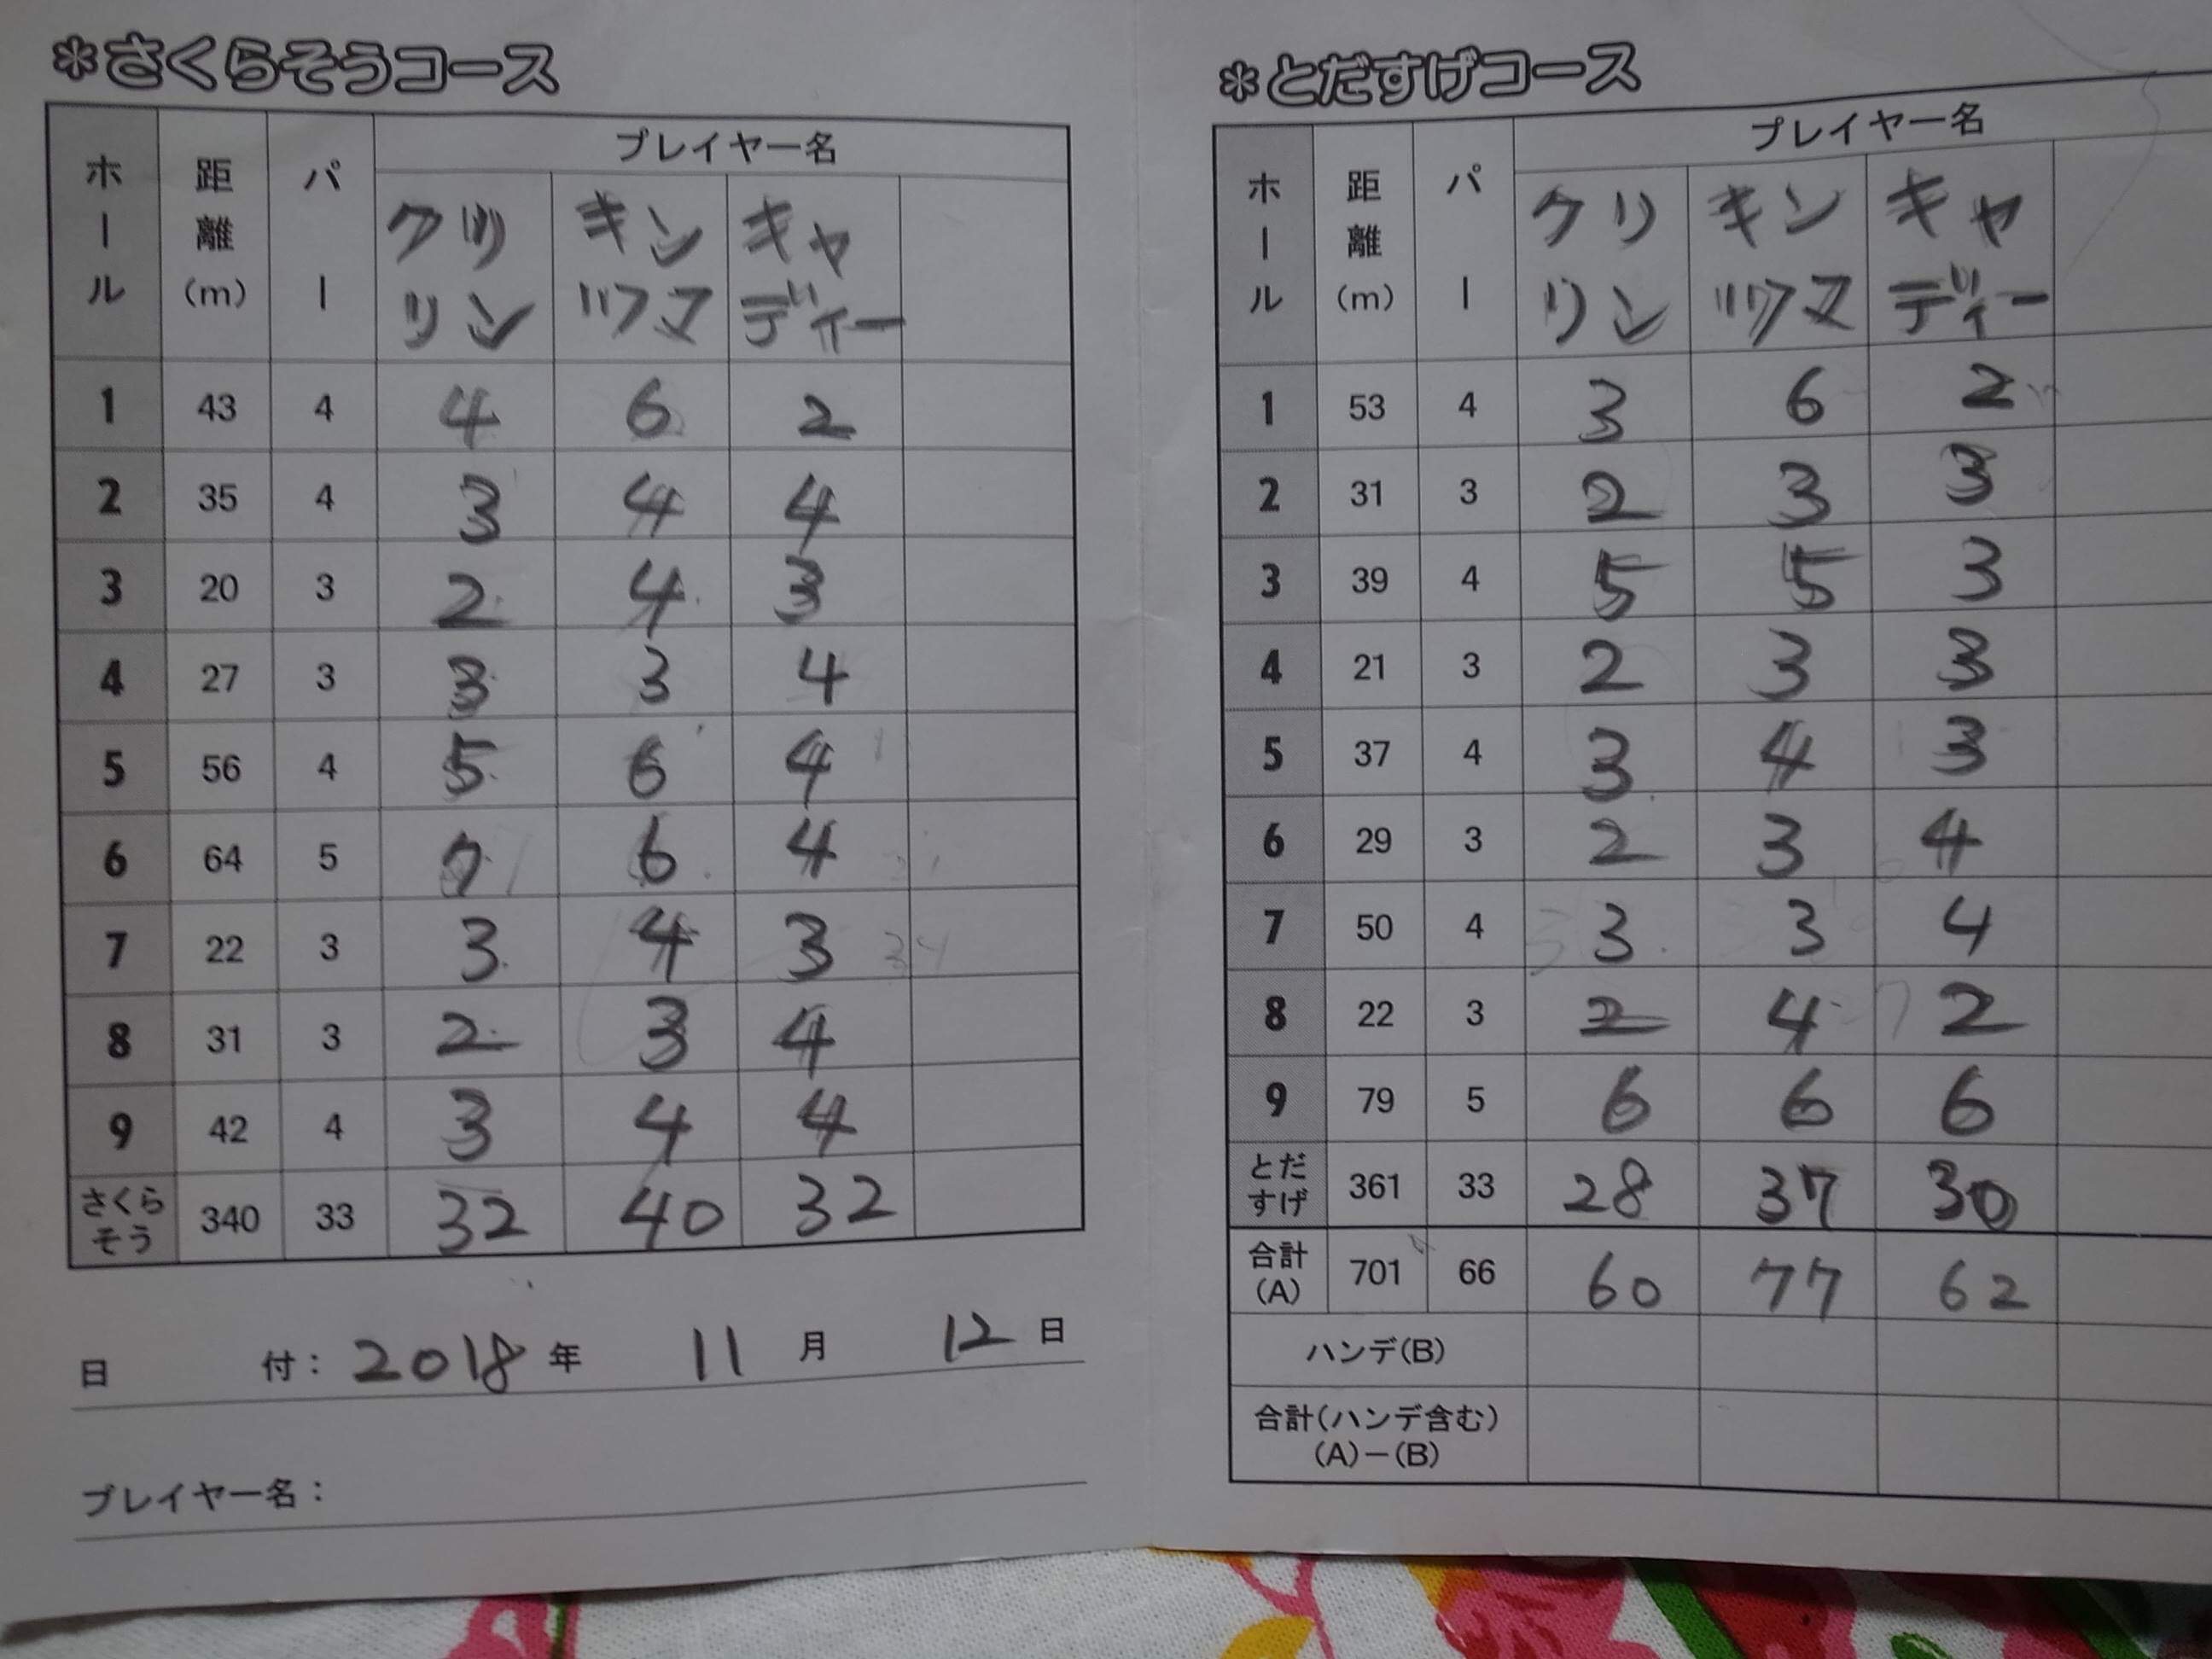 *さくらそうコース
ホール 距離(m) パー プレイヤー名
クリリン キンツマ キャディー
1 43 4 4 6 2
2 35 4 3 4 4
3 20 3 2 4 3
4 27 3 3 3 4
5 56 4 5 6 4
6 64 5 7 6 4
7 22 3 3 4 3
8 31 3 2 3 4
9 42 4 3 4 4
さくらそう 340 33 32 40 32
日付: 2018年 11月 12日
プレイヤー名:
*とだすげコース
ホール 距離(m) パー プレイヤー名
クリリン キンツマ キャディー
1 53 4 3 6 2
2 31 3 2 3 3
3 39 4 5 5 3
4 21 3 2 3 3
5 37 4 3 4 3
6 29 3 2 3 4
7 50 4 3 3 4
8 22 3 2 4 2
9 79 5 6 6 6
とだすげ 361 33 28 37 30
合計(A) 701 66 60 77 62
ハンデ(B)
合計(ハンデ含む)
(A)−(B)